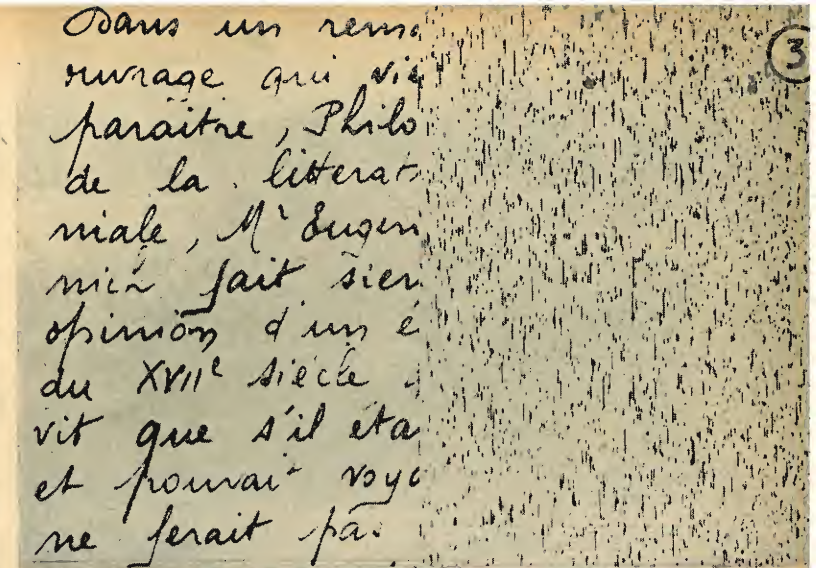 Dans un rem
ouvrage qui vi
paraître, Philo
de la litterat
niale, Mr Eugen
nier fait sien
opinion d'un é
du XVIIe siècle
vit que s'il éta
et pouvait voya
ne ferait pas
3